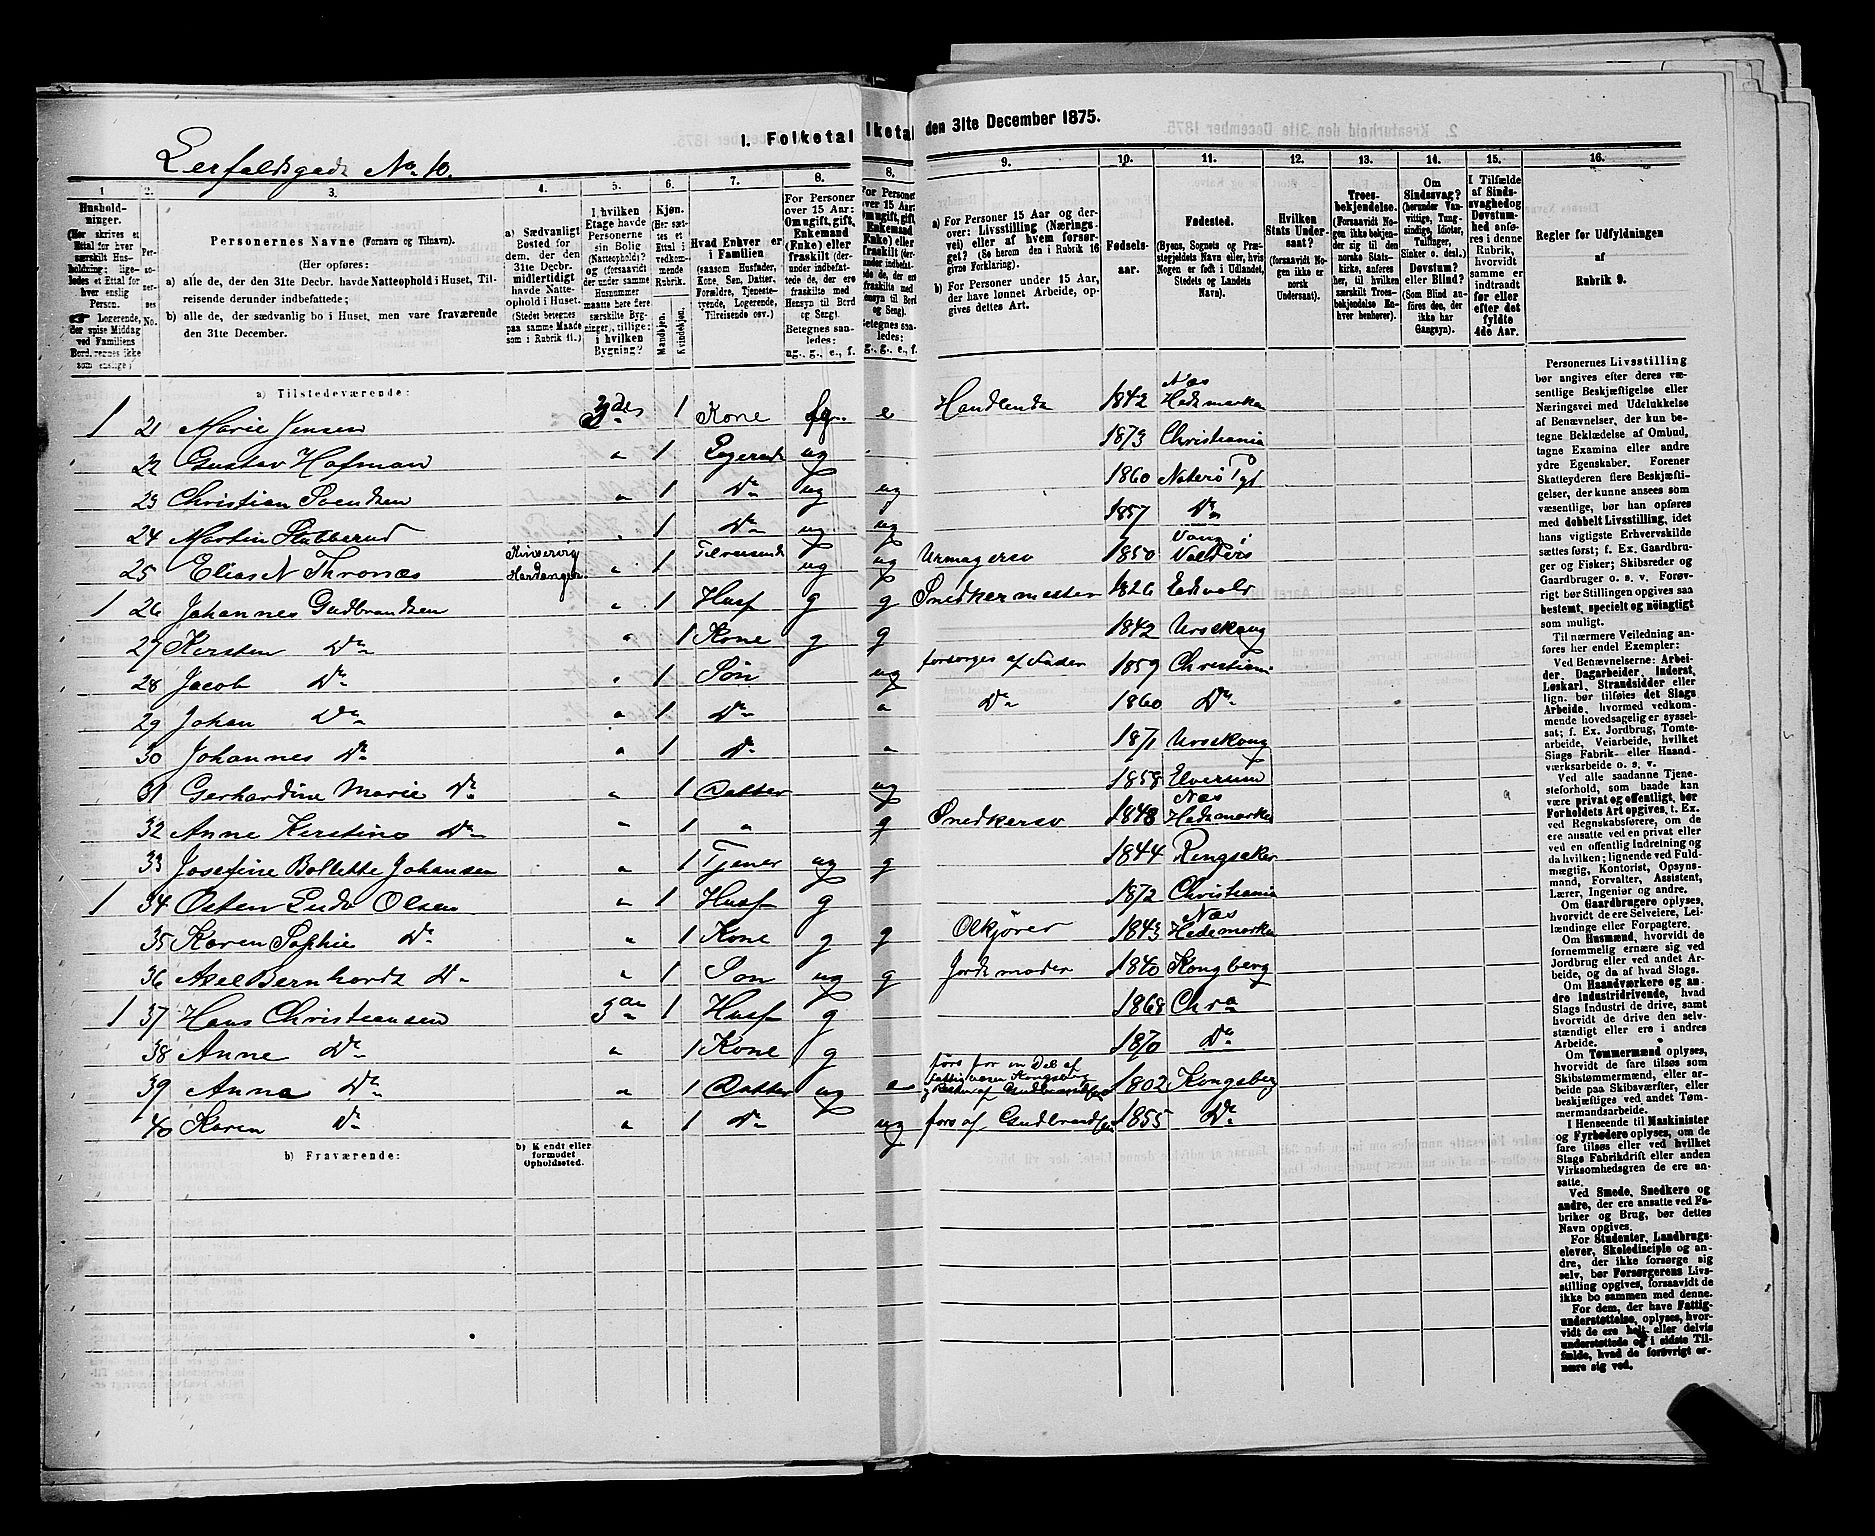 I. Folketal
lketal
den 31te December 1875.
Lerfaldsgade No 10.
1
Husholdninger.
(Her skrives et
Ettal for hver
særskilt Husholdning;
ligeledes et Ettal for
hver enslig
Person.
☛ Logerende,
der spise Middag
ved Familiens
Bord, regnes ikke
som enslige)
2.
Personernes
No.
3.
Personernes Navne (Fornavn og Tilnavn).
(Her opføres:
a) alle de, der den 31te Decbr. havde Natteophold i Huset, Tilreisende derunder indbefattede;
b) alle de, der sædvanlig bo i Huset, men vare fraværende
den 31te December.
4.
a) Sædvanligt
Bosted for
dem, der den
31te Decbr.
midlertidigt
havde Natteophold
i Huset.
(Stedet betegnes
paa samme Maade
som i Rubrik 11.)
5.
I hvilken
Etage havde
Personerne
sin Bolig
(Natteophold?)
og (forsaavidt
der under samme
Husnummer
maatte høre flere
særskilte Bygninger),
tillige:
i hvilken
Bygning?
6.
Kjøn.
(Her sættes
et
Ettal i
vedkommende
Rubrik.
Mandkjøn.
Kvindekjøn.
7.
Hvad Enhver er
i Familien
(saasom Husfader,
Kone, Søn, Datter,
Forældre, Tjenestetyende,
Logerende,
Tilreisende osv.)
8.
For Personer
over 15 Aar:
Om ugift, gift,
Enkemand
(Enke) eller
fraskilt (derunder
indbefattede
de, der ere
fraskilte med
Hensyn til Bord
og Seng).
Betegnes saaledes:
ug., g., e., f.
9.
a) For Personer 15 Aar og derover:
Livsstilling (Næringsvei)
eller af hvem forsørget?
(Se herom den i Rubrik 16
givne Forklaring).
b) For Personer under 15 Aar,
der have lønnet Arbeide, opgives
dettes Art.
10.
Fødselsaar.
11.
Fødested.
(Byens, Sognets og Præstegjeldets
Navn eller, hvis
Nogen er født i Udlandet,
Stedets og Landets
Navn).
12.
Hvilken
Stats Undersaat?
(forsaavidt Nogen
ikke er
norsk
Undersaat).
13.
Troesbekjendelse.
(Forsaavidt Nogen
ikke bekjender
sig til den
norske Statskirke,
anføres
her, til hvilken
særskilt Troesbekjendelse
Enhver
henhører).
14.
Om
Sindssvag?
(herunder Vanvittige,
Tungsindige,
Idioter,
Tullinger,
Sinker o. desl.)
Døvstum?
eller Blind?
(Som Blind anføres
den, der
ikke har
Gangsyn).
15.
I Tilfælde
af Sindssvaghed
og
Døvstumhed
anføres
i denne
Rubrik,
hvorvidt
samme er
indtraadt
før eller
efter det
fyldte
4de Aar.
16.
Regler for Udfyldningen
af
Rubrik 9.
a) Tilstedeværende:
1 21 Marie Jensen 1 Kone e Handlende 1842 Næs Hedemarken
22 Gustav Hofman " 1 Logerende ug 1873 Christiania
23 Christian Svendsen " 1 Do ug ug 1860
24 Martin Stubberud " 1 Do ug ug 1857 Do
25 Elias N Thronæs Hardanger " 1 Tilreisende ug ug Urmagersv 1850 Vang i Valders
1 26 Johannes Gudbrandsen " 1 Husf g g Snedkermester 1826 Eidsvold
27 Kersten Do " 1 Kone g g 1842 Urskoug
28 Jacob Do " 1 Søn ug forsorges af Fader 1859 Christiania
29 Johan Do " 1 Do " Do 1860 Do
30 Johannes Do " 1 Do " 1871 Urskoug
31 Gerhardine Marie Do " 1 Datter ug 1858 Elverum
32 Anne Kirstine Do " 1 " g Snedkersv 1848 Næs Hedemarken
33 Josefine Bollette Johansen " 1 Tjener ug g 1844 Ringsaker
1 34 Osten Ludv Olsen " 1 Husf g 1872 Christiania
35 Karen Sophie Do " 1 Kone g g Olkjører 1843 Næs Hedemarken
36 Axel Bernhardt Do " 1 Søn ug g Jordmoder 1840 Kongberg
1 37 Hans Christiansen 3die 1 Husf g 1868 Chra
38 Anne Do " 1 Kone g 1870 Do
39 Anna Do " 1 Datter ug e fors for en Del af Fattigvæsen Kongsberg Resten af Gudbrandsen 1802 Kongsberg
40 Karen Do " 1 Do ug fors af Gudbrandsen 1855 Do
b) Fraværende:
b) Kjendt eller
formodet
Opholdssted.
Personernes Livsstilling
bør angives efter deres væsentlige
Beskjæftigelse eller
Næringsvei med Udelukkelse
af Benævnelser, der kun betegne
Beklædelse af Ombud,
tagne Examina eller andre
ydre Egenskaber. Forener
Skatteyderen flere Beskjæftigelser,
der kunne ansees som
væsentlige, bør han opføres
med dobbelt Livsstilling, idet
hans vigtigste Erhvervskilde
sættes først; f. Ex. Gaardbruger
og Fisker; Skibsreder og
Gaardbruger o. s. v. Forøvrigt
bør Stillingen opgives saa
bestemt, specielt og nøiagtigt
som muligt.
Til nærmere Veiledning anføres
her endel Exempler:
Ved Benævnelserne: Arbeider,
Dagarbeider, Inderst,
Løskarl, Strandsidder eller
lign. bør tilføies det Slags
Arbeide, hvormed vedkommende
hovedsagelig er sysselsat;
f. Ex. Jordbrug, Tomtearbeide,
Veiarbeide, hvilket
Slags Fabrik- eller Haandværksarbeide
o. s. v.
Ved alle saadanne Tjenesteforhold,
som baade kan
være privat og offentligt, bør
Forholdets Art opgives, t. Ex.
ved Regnskabsførere, om de
ere ansatte ved en privat eller
ved en offentlig Indretning og
da hvilken; lignende ved Fuldmægtig,
Kontorist, Opsynsmand,
Forvalter, Assistent,
Lærer, Ingeniør og andre.
Om Gaardbrugere oplyses,
hvorvidt de ere Selveiere, Leilændinge
eller Forpagtere.
Om Husmænd, hvorvidt de
fornemmelig ernære sig ved
Jordbrug eller ved andet Arbeide,
og da af hvad Slags.
Om Haandværkere og andre
Industridrivende, hvad
Slags Industri de drive, samt
hvorvidt de drive den selvstændigt
eller ere i andres
Arbeide.
Om Tømmermænd oplyses,
hvorvidt de fare tilsøs som
Skibstømmermænd, eller arbeide
paa Skibsværfter, eller
beskjæftiges ved andet Tømmermandsarbeide.
I Henseende til Maskinister
og Fyrbødere oplyses, om de
fare tilsøs eller ved hvilket
Slags Fabrikdrift eller anden
Virksomhedsgren de ere ansatte.
Ved Smede, Snedkere og
andre, der ere ansatte ved Fabriker
og Brug, bør dettes
Navn opgives.
For Studenter, Landbrugselever,
Skoledisciple og andre,
der ikke forsørge sig
selv, bør Forsørgerens Livsstilling
opgives, forsaavidt de
ikke bo sammen med denne.
For dem, der have Fattigunderstøttelse,
oplyses, hvorvidt
de ere helt eller delvis
understøttede og i sidste Tilfælde,
hvad de forøvrigt ernære
sig ved.